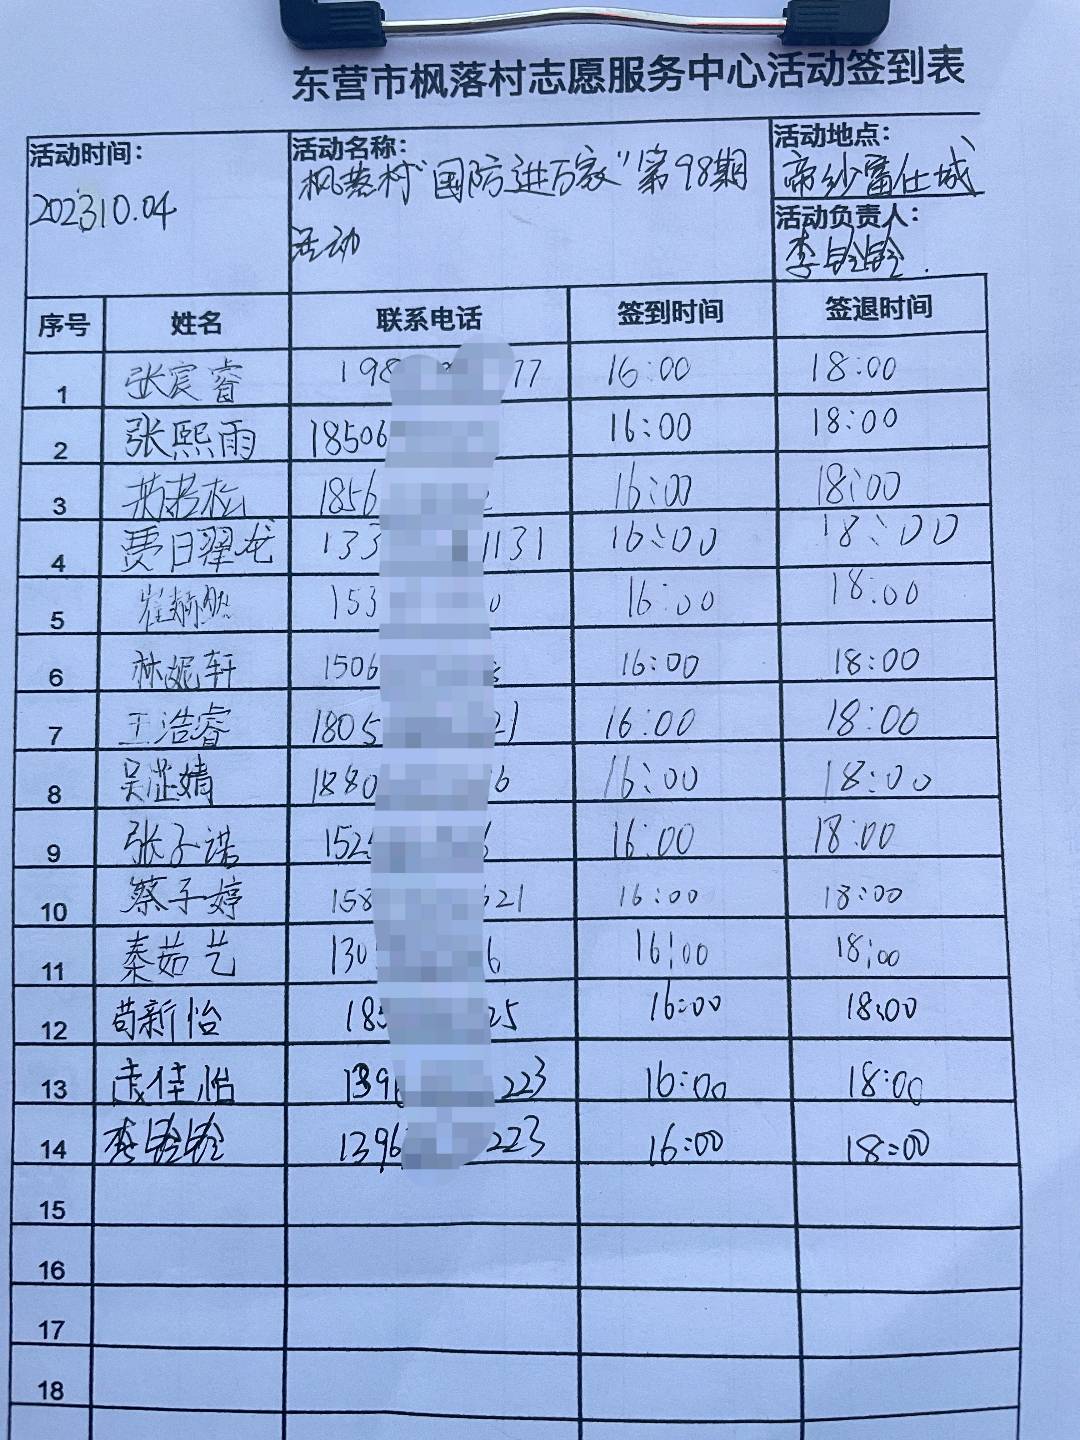 东营市枫落村志愿服务中心活动签到表
活动时间：
2023.10.04
活动名称：
枫落村“国防进万家”第98期
活动
活动地点：
帝纱富仕城
活动负责人：
李铃铃
序号 姓名 联系电话 签到时间 签退时间
1 张宸睿 198 77 16:00 18:00
2 张熙雨 18506 16:00 18:00
3 1856 16:00 18:00
4 贾日翟龙 133 1131 16:00 18:00
5 153 0 16:00 18:00
6 林妮轩 1506 16:00 18:00
7 王浩睿 1805 21 16:00 18:00
8 吴芷婧 1880 6 16:00 18:00
9 张子诺 152 16:00 18:00
10 蔡子婷 158 621 16:00 18:00
11 秦茹艺 130 6 16:00 18:00
12 苟新怡 185 25 16:00 18:00
13 佳怡 1396 223 16:00 18:00
14 李铃铃 1396 223 16:00 18:00
15
16
17
18